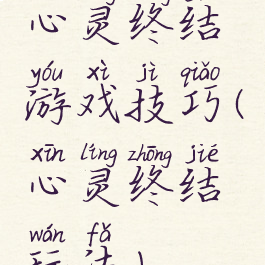 心灵终结
yóu xì jì qiǎo
游戏技巧(
xīn líng zhōng jié
心灵终结
wán fǎ